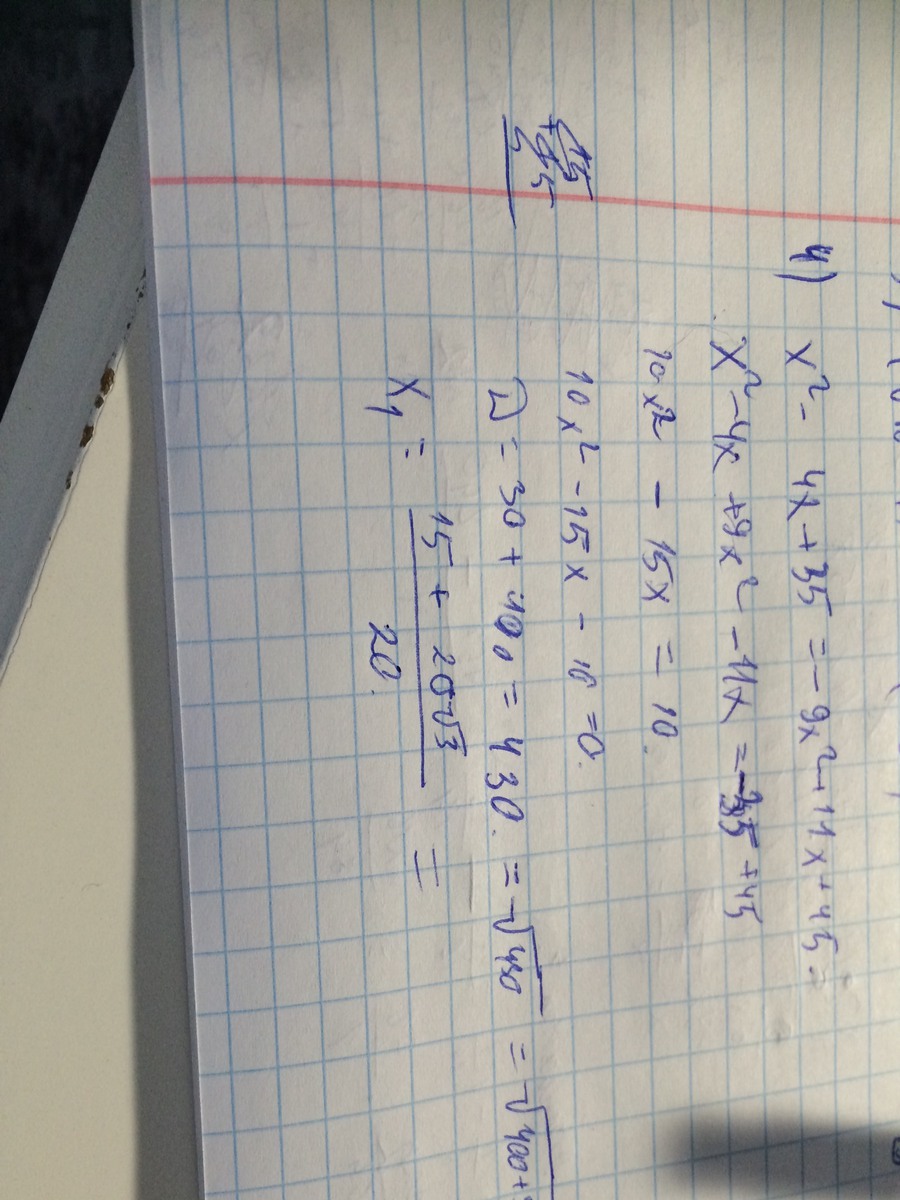 4) x² - 4x + 35 = - 9x² + 11x + 45 =
x² - 4x + 9x² - 11x = -35 + 45
10x² - 15x = 10.
10x² - 15x - 10 = 0.
D = 30 + 400 = 430. = √430 = √400+
x₁ = (15 + 20√3)/20. =